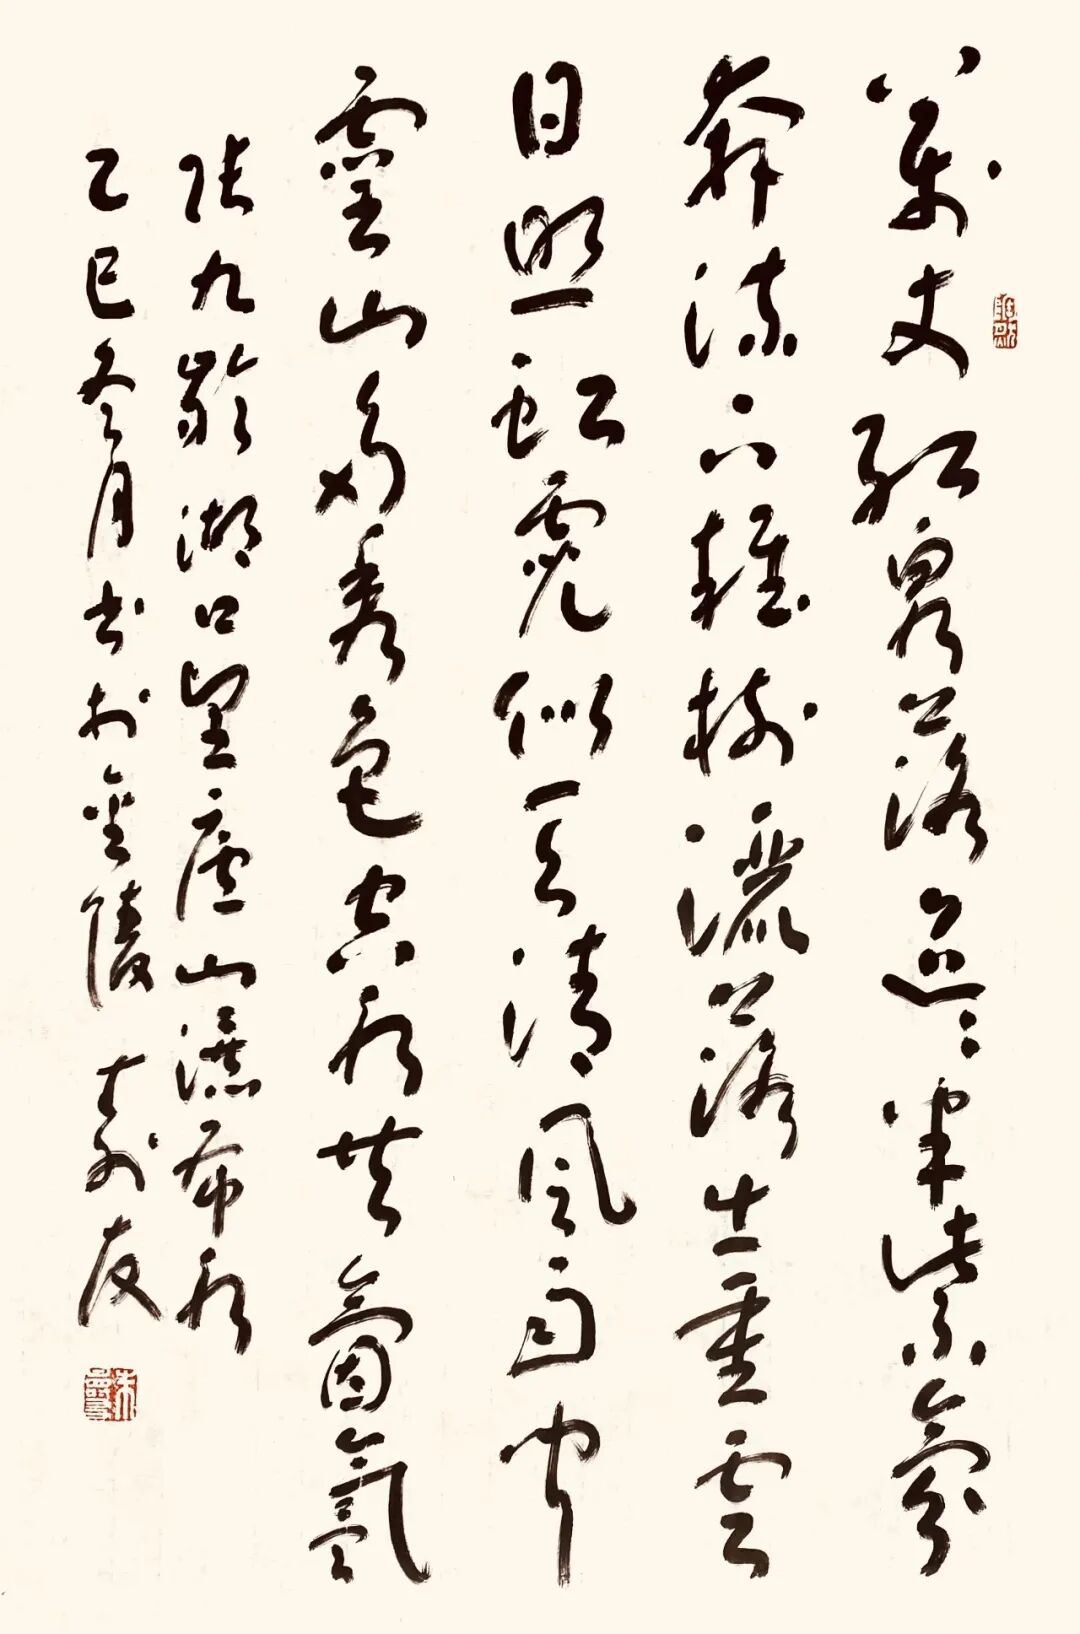 萬丈紅泉落迢迢半紫氛
奔流下雜樹灑落出重雲
日照虹霓似天清風雨聞
靈山多秀色空水共氤氳
張九齡湖口望廬山瀑布水
乙巳冬月書於金陵壽友